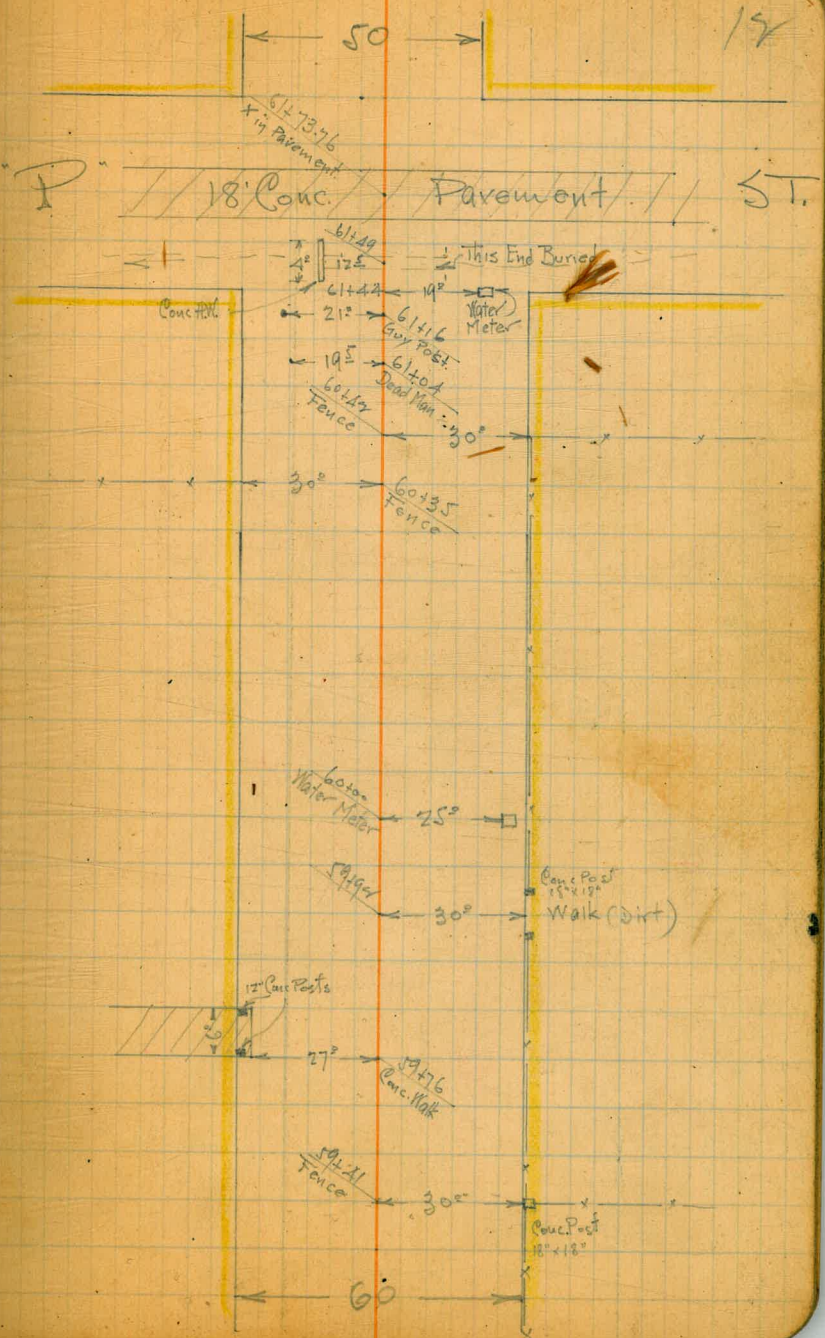 50
61+73.76
X in Pavement
"P" 18' Conc. Pavement ST.
61+49
4° 12⁵ This End Buried
61+42 19²
Conc. H.W.
Water
Meter
21° 61+16
Guy Post
19⁵ 61+04
Dead Man
60+42
Fence
30°
30° 60+35
Fence
60+00
Water Meter
25°
Conc. Post
18"x18"
59+92
30° Walk (Dirt)
12" Conc. Posts
27° 59+76
Conc. Walk
59+41
Fence
30°
Conc. Post
18"x18"
60